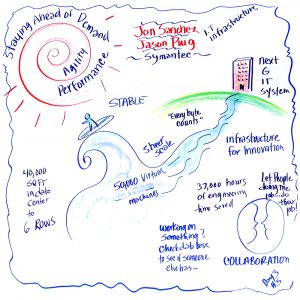 Staying Ahead of Demand
Agility
Performance
Jon Sanchez
Jason Puig
~ Symantec ~
I.T. infrastructure
next
G
IT
System
STABLE
"Every byte
counts"
Sheer
scale
Infrastructure
for Innovation
50,000 Virtual
machines
40,000
SQ FT
in date
Center
to
6 ROWS
37,000 hours
of engineering
time saved
Let People
doing the
job.. do
their
job!
Working on
Something?
Check database
to see if someone
else has...
COLLABORATION